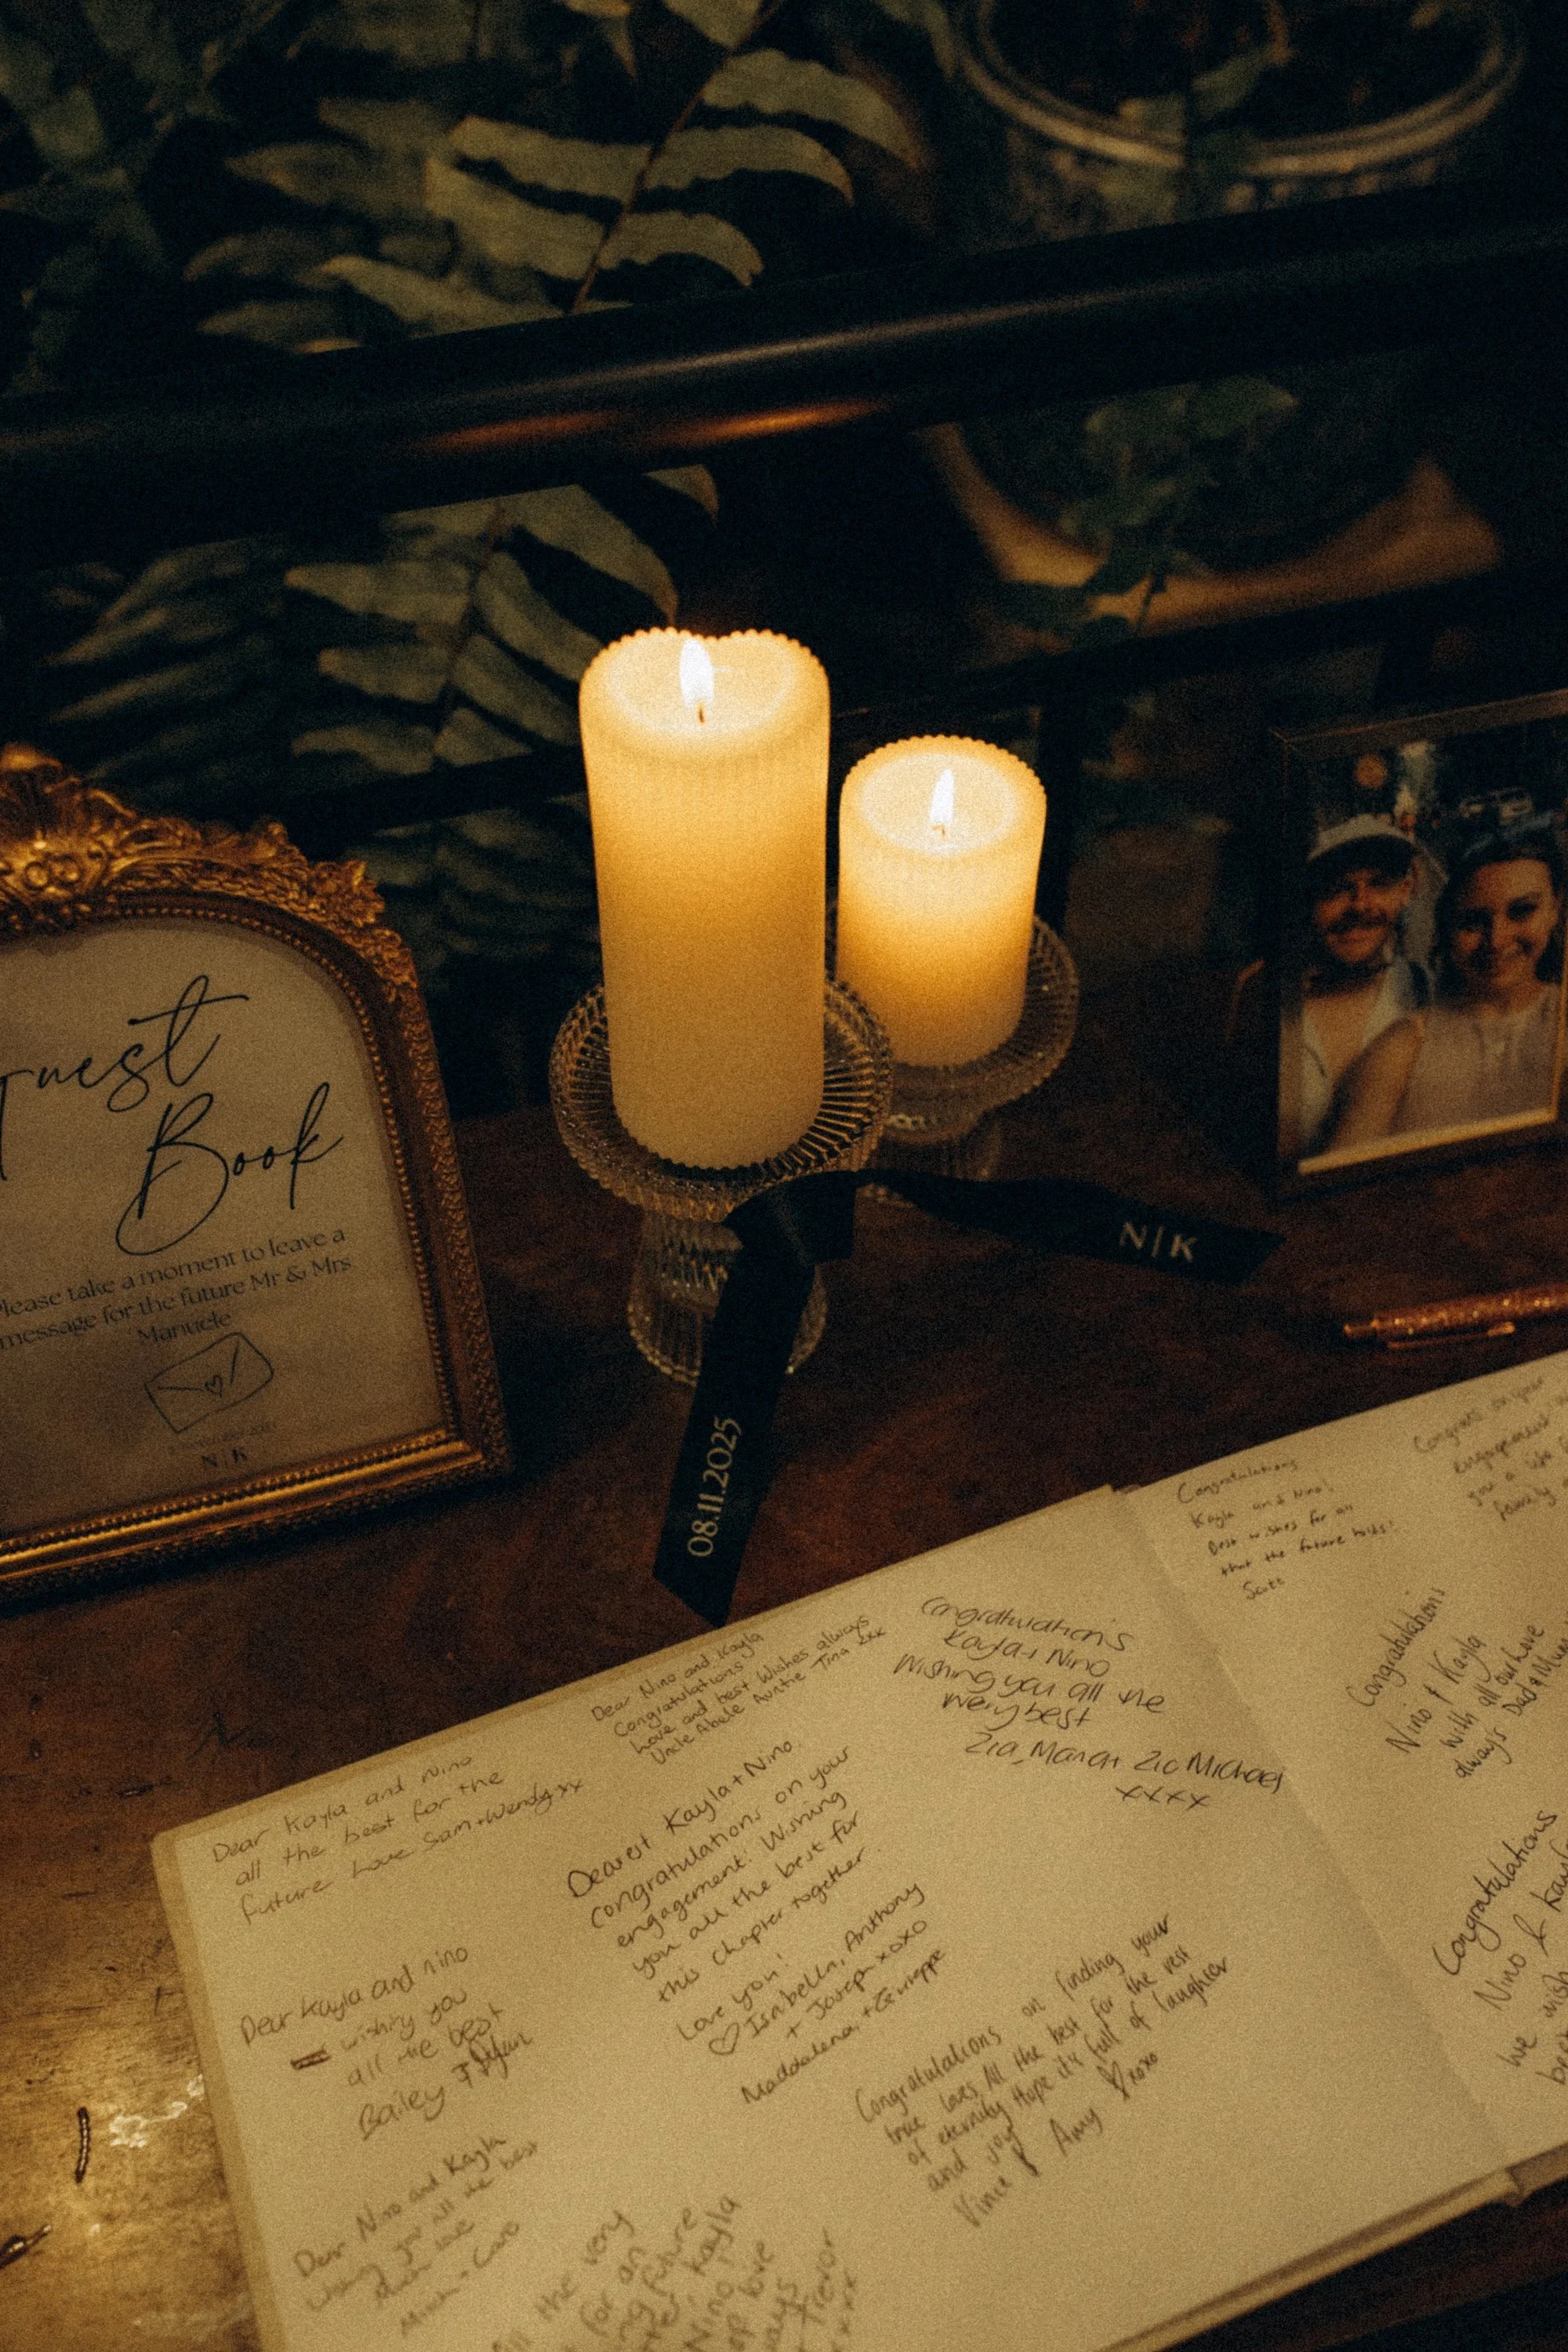 Guest
Book
Please take a moment to leave a
message for the future Mr & Mrs
Manuele
N | K
N|K
08.11.2025
Dear Kayla and Nino
all the best for the
future Love Sam + Wendy xx
Dear Nino and Kayla
Congratulations
Love and best Wishes always
Uncle Abele Auntie Tina xxx
Congratulation's
Kayla + Nino
Wishing you all the
very best
Zia Maria + Zio Michael
xxxx
Dearest Kayla + Nino,
congratulations on your
engagement. Wishing
you all the best for
this chapter together.
Love you!
Isabella, Anthony
+ Joseph xoxo
Maddalena, + Giuseppe
Dear Kayla and nino
wishing you
all the best
Bailey + Dylan
Congratulations on finding your
true loves. All the best for the rest
of eternity. Hope it's full of laughter
and joy
Vince & Amy xoxo
Dear Nino and Kayla
wishing you all the best
Much love
the very
for an
future
Kayla
Nino
love
Trevor
Congratulations
Kayla and Nino!
Best wishes for all
that the future holds!
Scott
Congrats on your
engagement
you a life
family
Congratulations
Nino + Kayla
with all our love
always Dad + Mum
Congratulations
Nino &
we wish